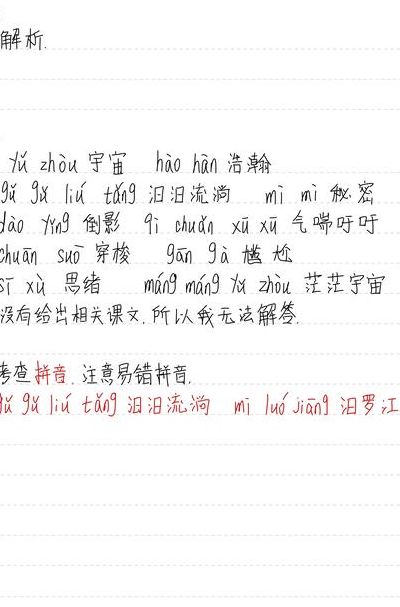 解析.
yǔ zhòu 宇宙 hào hàn 浩瀚
gǔ gǔ liú tǎng 汩汩流淌 mì mì 秘密
dào yǐng 倒影 qì chuǎn xū xū 气喘吁吁
chuān suō 穿梭 gān gà 尴尬
sī xù 思绪 máng máng yǔ zhòu 茫茫宇宙
没有给出相关课文,所以我无法解答.
考查拼音,注意易错拼音.
gǔ gǔ liú tǎng 汩汩流淌 mì luó jiāng 汨罗江